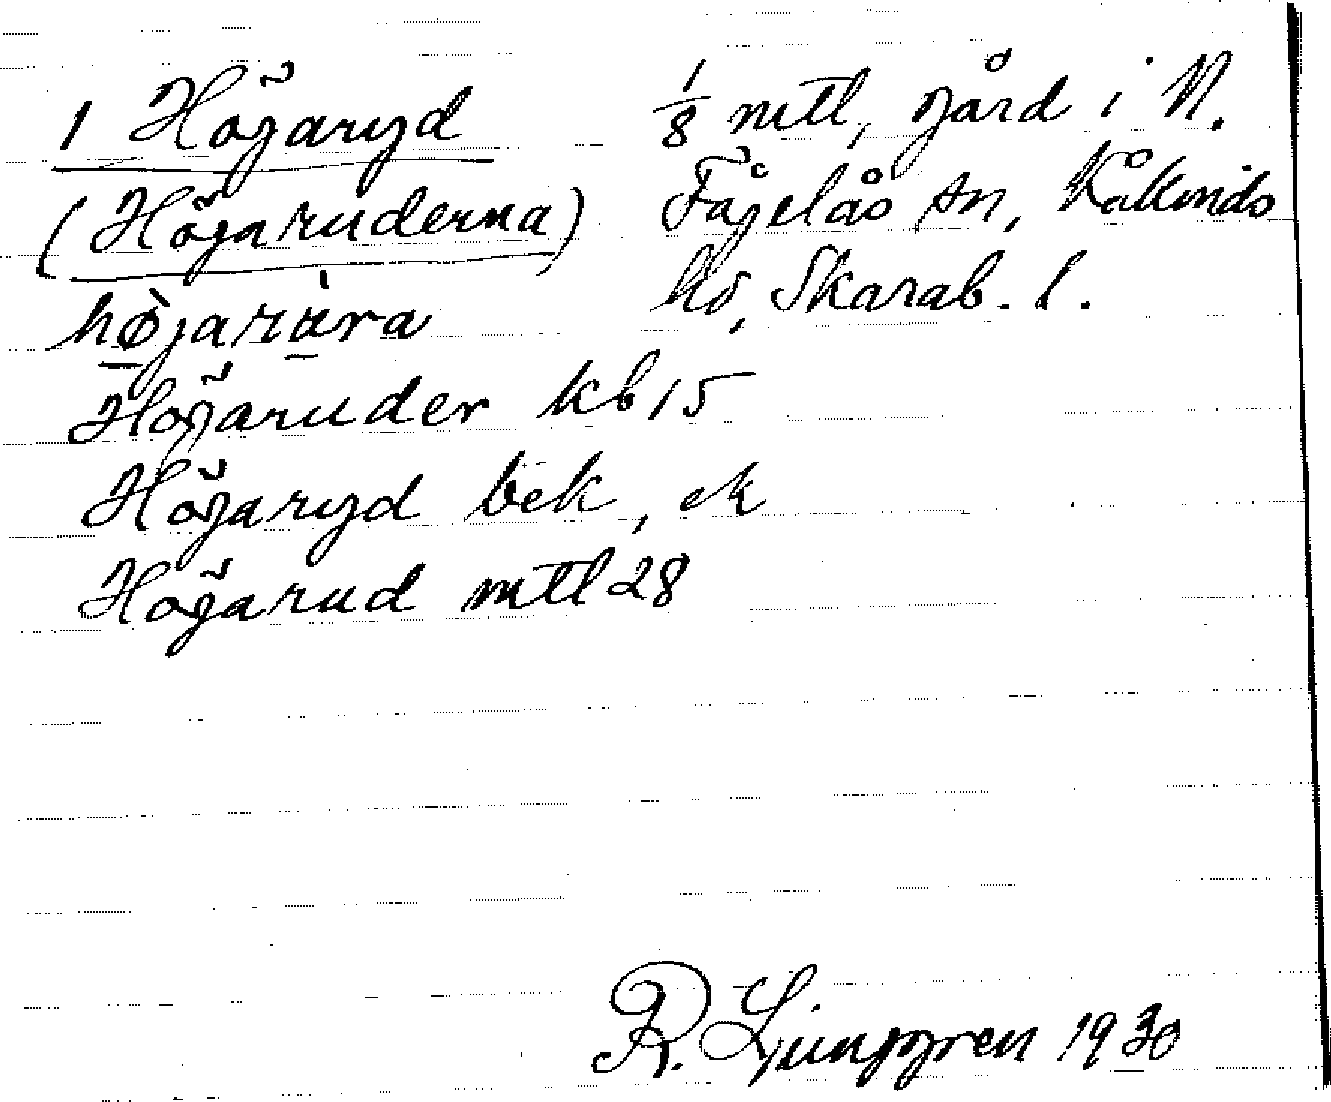 1 Högaryd
(Högaruderna)
højaràra
Högaruder kb 15
Högaryd bek, ek
Högarud mtl 28
1/8 mtl, gård i N.
Fågelås sn, Kåkinds
hd, Skarab. l.
R. Ljunggren 1930